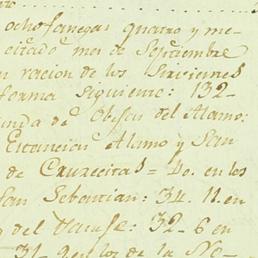 ocho fanegas quatro y me-
citado mes de Septiembre
n racion de los Sirvienes
forma siguiente: 132-
unda de Obejas del Alamo:
Estancian Alamo y San
de Cruzecitas = 40. en los
San Sebastian: 34. 11. en
del 32-6 en
31-9 en los de la No-